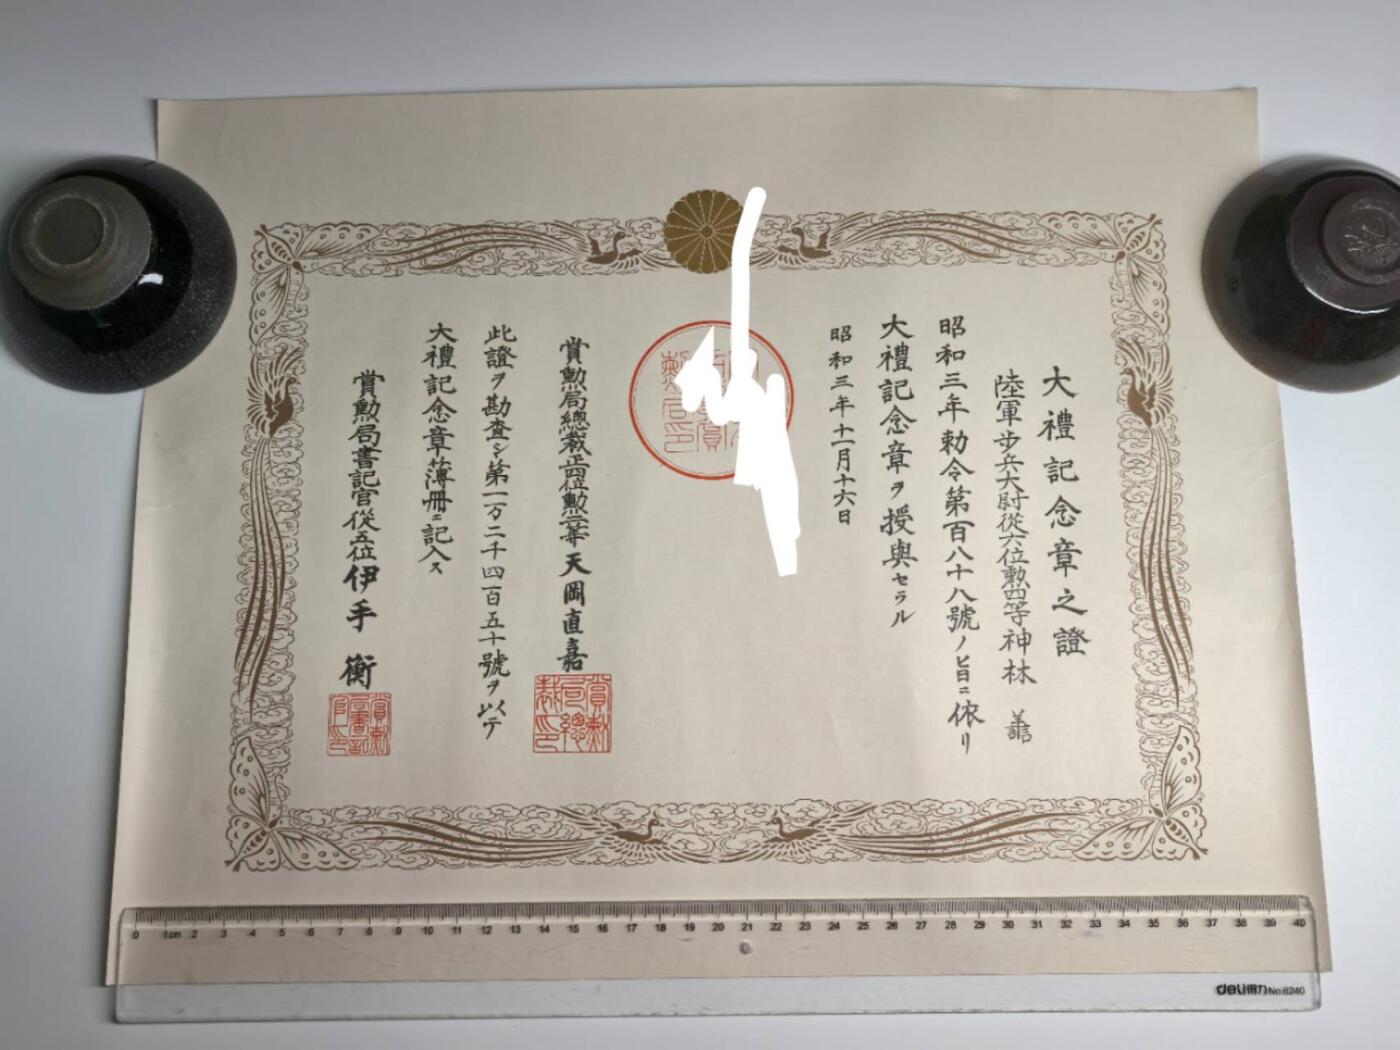 大禮記念章之證
陸軍步兵大尉從六位勲四等神林
昭和三年勅令第百八十八號ノ旨ニ依リ
大禮記念章ヲ授與セラル
昭和三年十一月十六日
賞勲局總裁正四位勲二等天岡直嘉
賞勲局總裁印
此證ヲ勘査シ第一万二千四百五十號ヲ以テ
大禮記念章簿冊ニ記入ス
賞勲局書記官從五位伊手衡
賞勲局書記官印
0 1cm 2 3 4 5 6 7 8 9 10 11 12 13 14 15 16 17 18 19 20 21 22 23 24 25 26 27 28 29 30 31 32 33 34 35 36 37 38 39 40
deli得力 No:6240